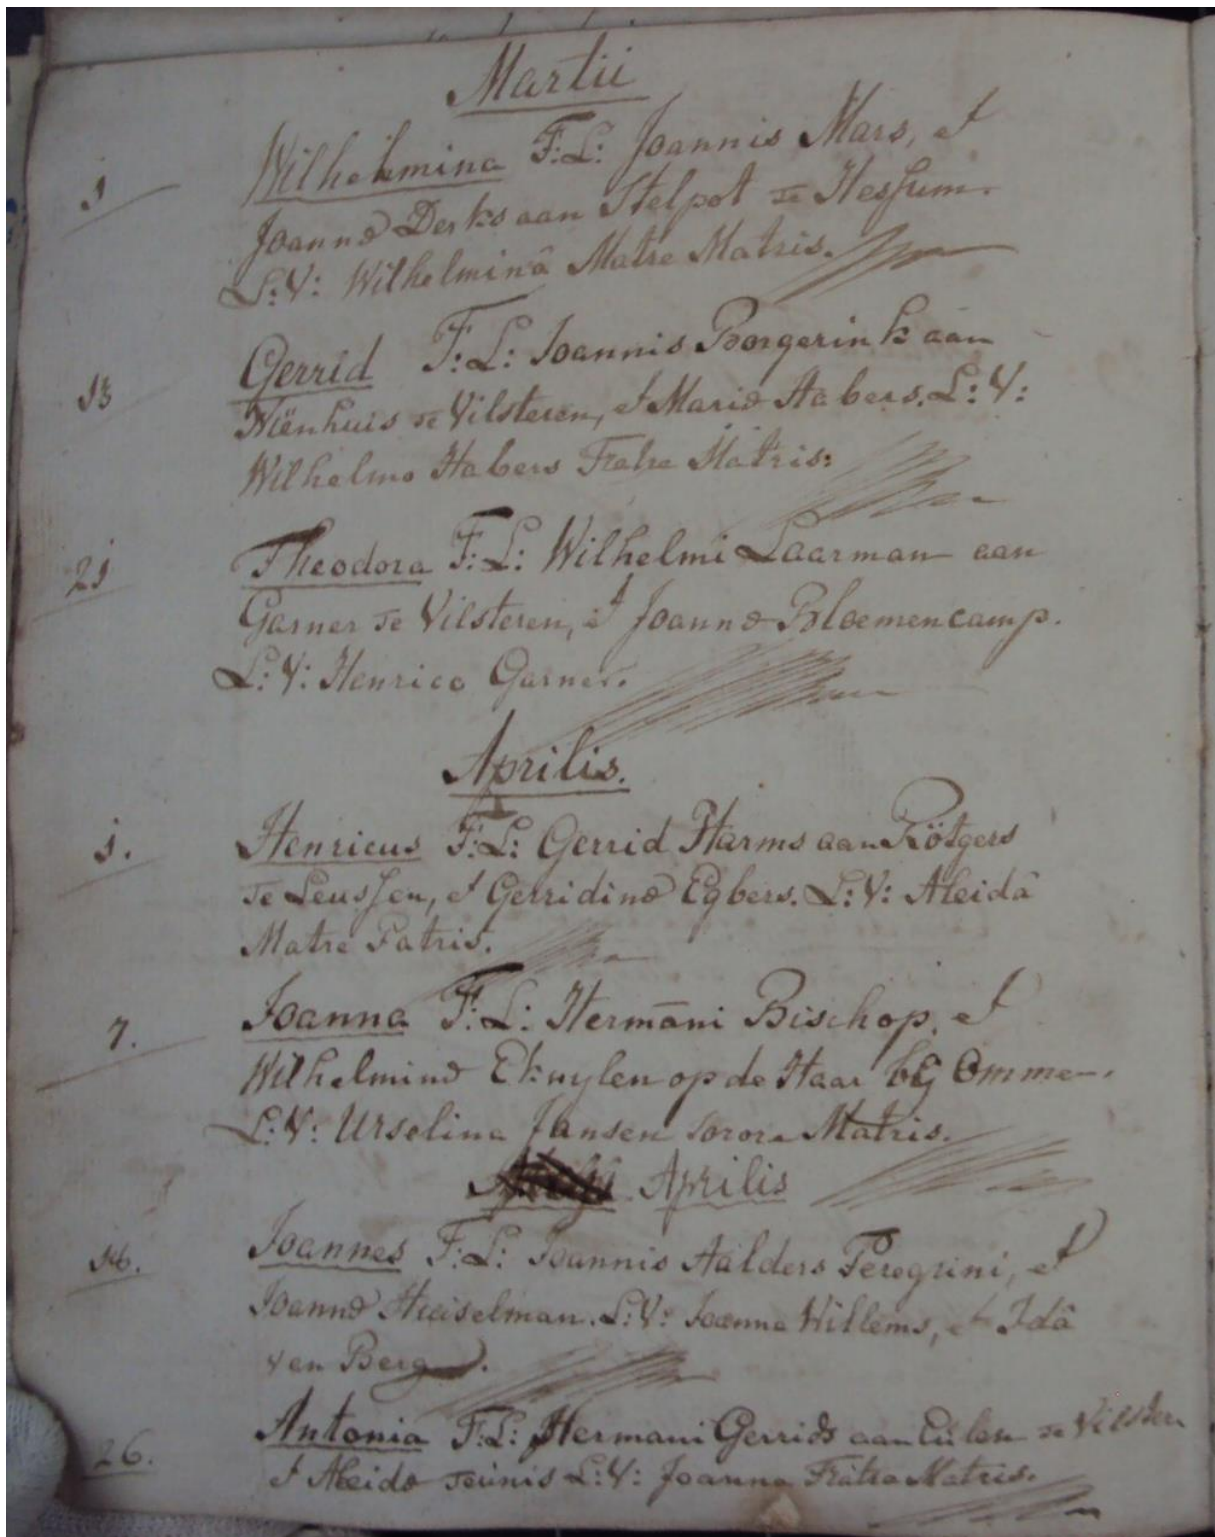 Martii
1 Wilhelmina F: L: Joannis Mars, et
Joannæ Derks aan Stelpot te Hessum.
L: V: Wilhelminâ Matre Matris.
13 Gerrid F: L: Joannis Borgerink aan
Niënhuis te Vilsteren, et Mariæ Habers. L: V:
Wilhelmo Habers Fratre Matris.
21 Theodora F: L: Wilhelmi Laarman aan
Garner te Vilsteren, et Joannæ Bloemencamp.
L: V: Henrico Garner.
Aprilis.
1. Henricus F: L: Gerrid Harms aan Rötgers
te Leussen, et Gerridinæ Egbers. L: V: Aleidâ
Matre Patris.
7. Joanna F: L: Herm̄ani Bischop, et
Wilhelminæ Eknylen op de Haar bij Ommen.
L: V: Urselina Jansen sorore Matris.
Aprilis
16. Joannes F: L: Joannis Aalders Peregrini, et
Joannæ Huiselman. L: V: Joanna Willems, et Idâ
ven Berg.
26. Antonia F: L: Hermani Gerrids aan Eülen te Vilster
et Aleidæ Teünis L: V: Joanne Fratre Matris.